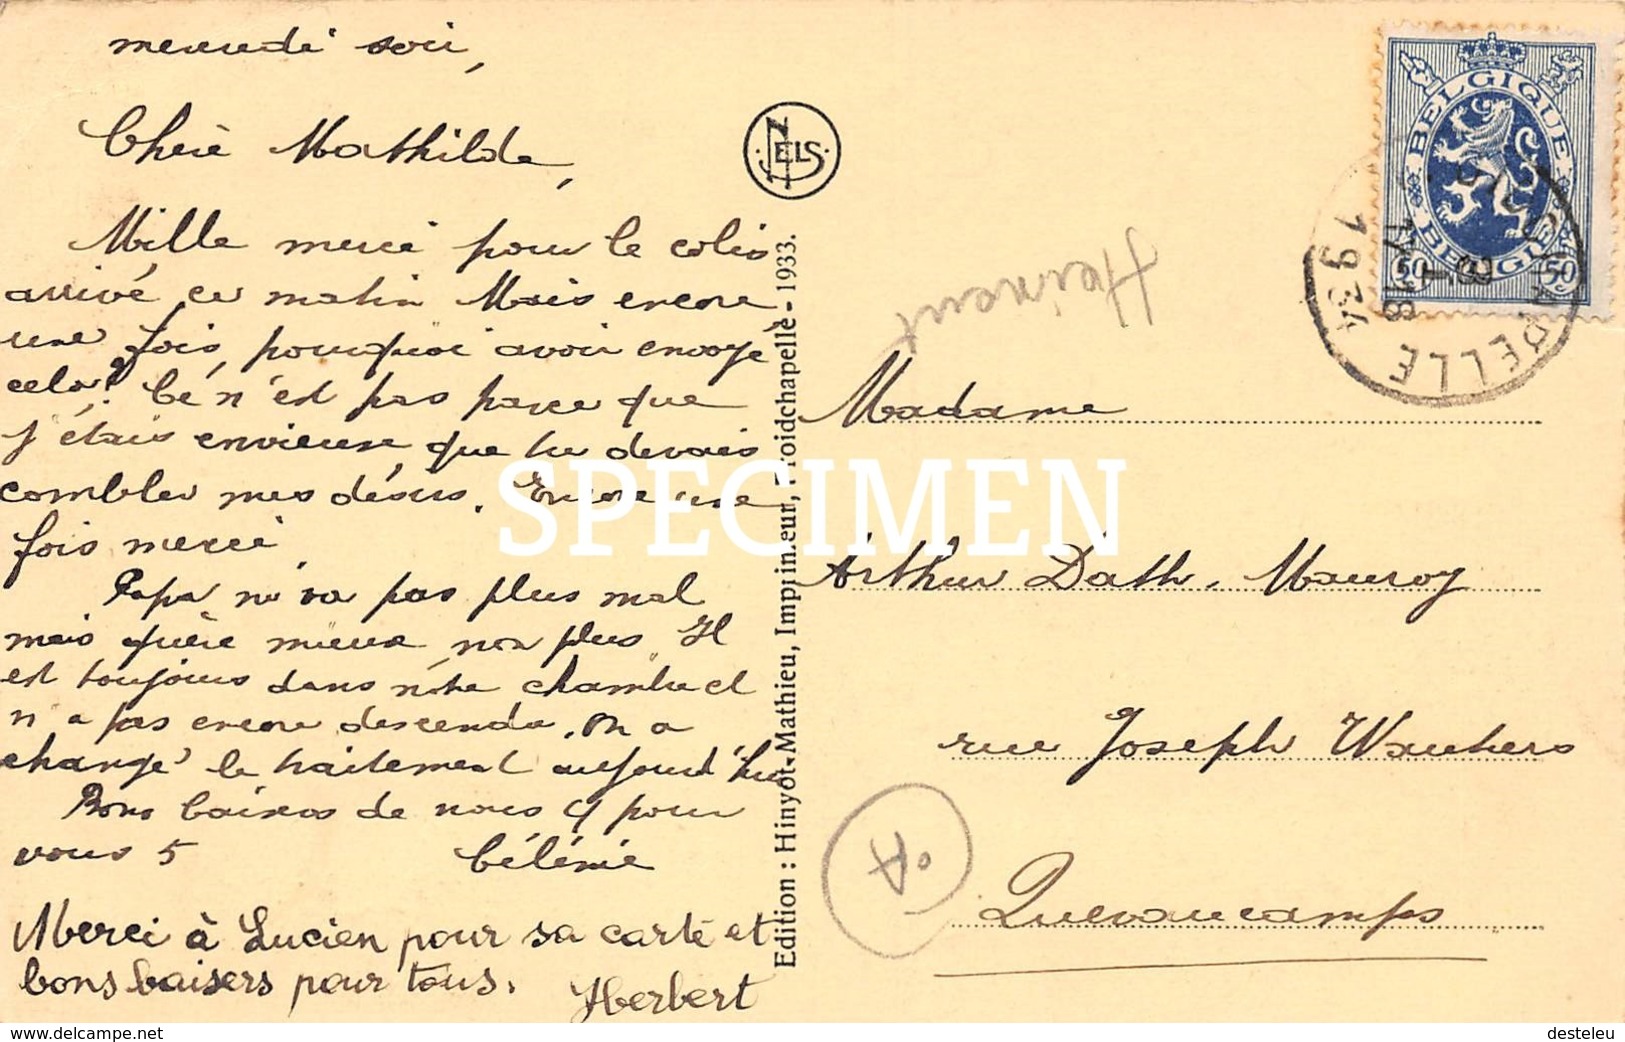 mercredi soir,
Chère Mathilde,
Mille merci pour le colis
arrivé ce matin Mais encore
une fois, pourquoi avoir envoyé
cela? Ce n'est pas parce que
j'étais envieuse, que tu devais
combler mes désirs. Encore une
fois merci
Papa ne va pas plus mal
mais guère mieux non plus. Il
est toujours dans nôtre chambre et
n'a pas encore descendu. On a
changé le traitement aujourd'hui
Bons baisers de nous 4 pour
vous 5 Célénie
Merci à Lucien pour sa carte et
bons baisers pour tous.
Herbert
NELS
Edition : Hinyot-Mathieu, Imprimeur, Froidchapelle - 1933.
BELGIQUE
BELGIE
50 50
17-18
1934
PELLE
SPECIMEN
Madame
Arthur Dath, Mauroy
rue Joseph Wauters
Quevaucamps
A
www.delcampe.net
desteleu